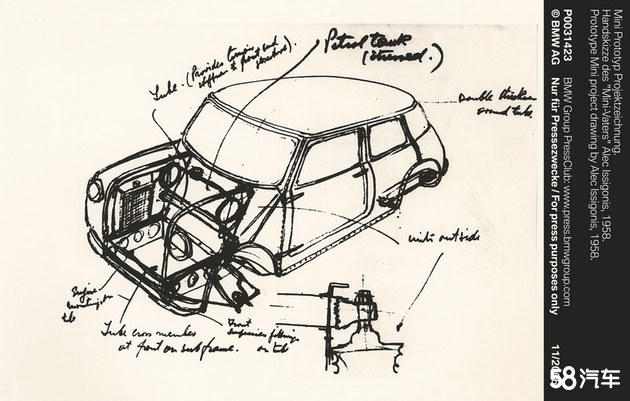 Petrol tank
(stressed.)
Tube. (Provides torsional
stiffness to front
structure).
Double thickness
around tube.
units outside
Engine
mounting on
tube
Tube cross member
at front on subframe.
Front
Suspension fittings
on tube
Mini Prototyp Projektzeichnung.
Handskizze des "Mini-Vaters" Alec Issigonis, 1958.
Prototype Mini project drawing by Alec Issigonis, 1958.
P0031423 BMW Group PressClub: www.press.bmwgroup.com
© BMW AG Nur für Pressezwecke / For press purposes only
58汽车